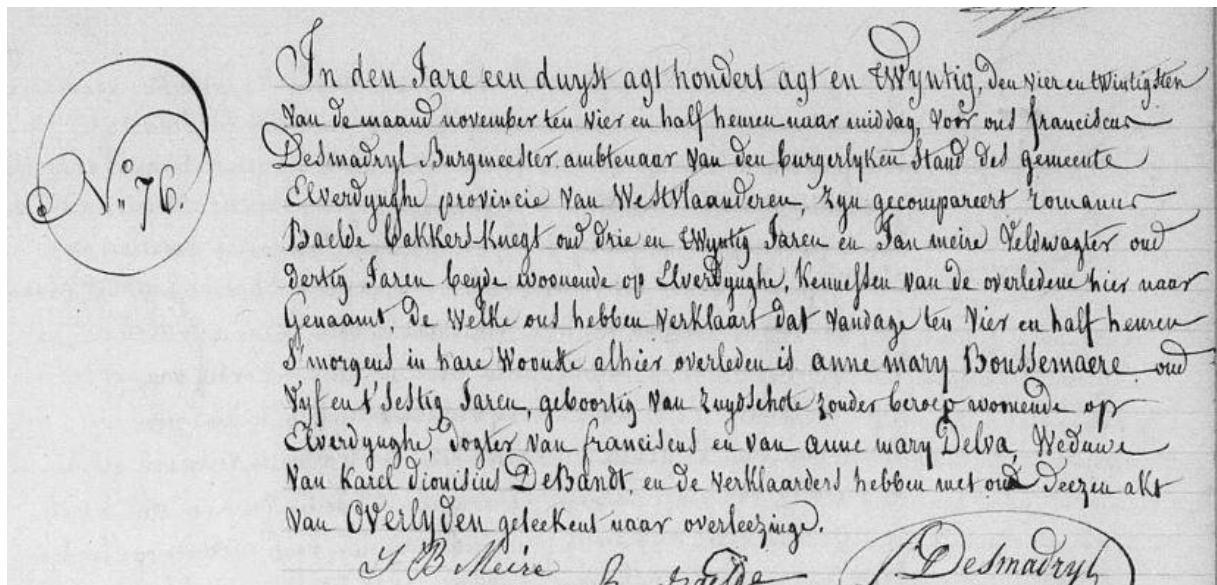 No. 76
In den Jare een duyst agt hondert agt en twyntig, den vier en twintigsten
van de maand november ten vier en half heuren naar middag, voor ons franciscus
Desmadryl Burgmeester ambtenaar van den burgerlyken stand des gemeente
Elverdynghe provincie van Westvlaanderen, zyn gecompareert romanus
Baelde bakkers-knegt oud drie en twyntig Jaren en Jan meire veldwagter oud
dertig Jaren beyde woonende op Elverdynghe, kennessen van de overledene hier naar
Genaamt de welke ons hebben verklaart dat vandage ten vier en half heuren
S'morgens in hare woonste alhier overleden is anne mary Boussemaere oud
vyf en t'sestig Jaren, geboortig van zuydschote zonder beroep woonende op
Elverdynghe, dogter van franciscus en van anne mary Delva, Weduwe
van Karel dionisius DeBandt, en de verklaarders hebben met ons deezen akt
van Overlyden geteekent naar overleezinge.
J B Meire R Baelde F Desmadryl